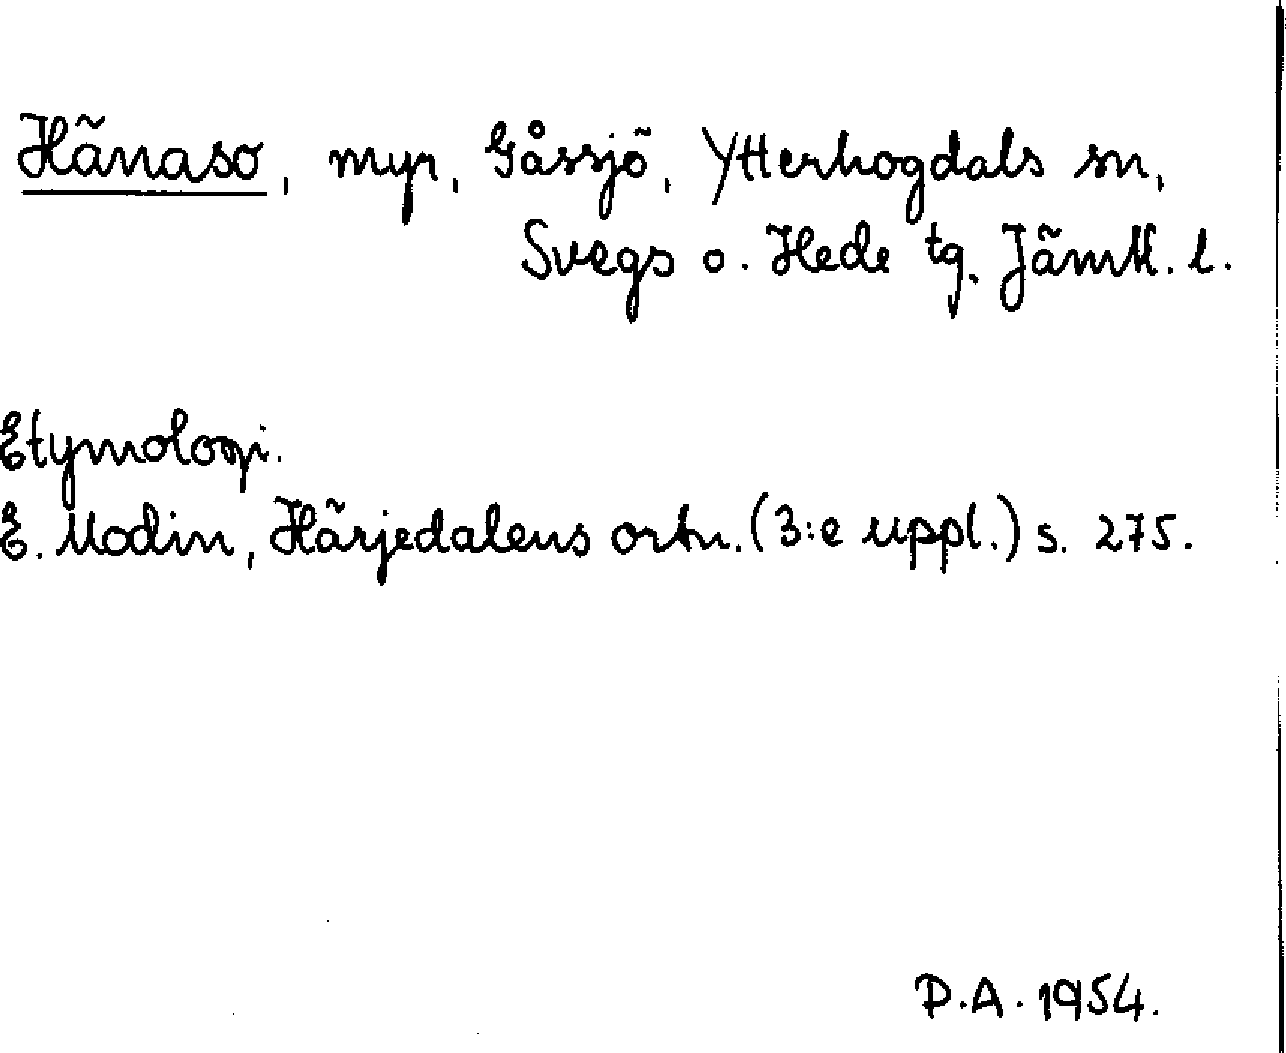 Hänaso, myr, Gåssjö, Ytterhogdals sn,
Svegs o. Hede tg. Jämtl. l.
Etymologi.
E. Modin, Härjedalens ortn. (3:e uppl.) s. 275.
P.A. 1954.